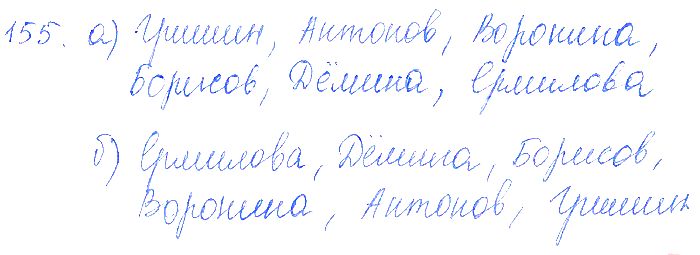 155. а) Гришин, Антонов, Воронина,
Борисов, Дёмина, Ермилова
б) Ермилова, Дёмина, Борисов,
Воронина, Антонов, Гришин